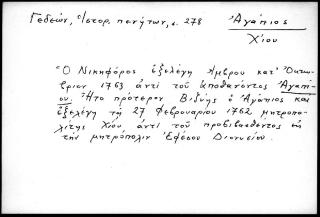 Γεδεών, Ἱστορ. πενήτων, σ. 278
Ἀγάπιος
Χίου
Ὁ Νικηφόρος ἐξελέγη Ἴμβρου κατ' Ὀκτώ-
βριον 1763 ἀντὶ τοῦ ἀποθανόντος Ἀγαπί-
ου. Ἦτο πρότερον Βιζύης ὁ Ἀγάπιος καὶ
ἐξελέγη τῇ 27 Φεβρουαρίου 1762 μητροπο-
λίτης Χίου ἀντὶ τοῦ προβιβασθέντος εἰς
τὴν μητρόπολιν Ἐφέσου Διονυσίου.